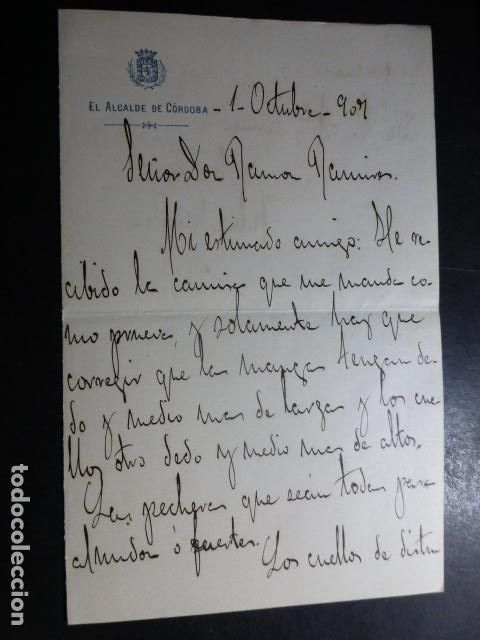 EL ALCALDE DE CÓRDOBA - 1 - Octubre - 907
Señor Don Ramon Ramirez.
Mi estimado amigo: He re
cibido la camisa que me manda co
mo prueva, y solamente hay que
corregir que las mangas tengan de
do y medio mas de largas y los cue
llos otro dedo y medio mas de altos.
Las pecheras que sean todas para
almidon ó fuertes. Los cuellos de distin
todocoleccion